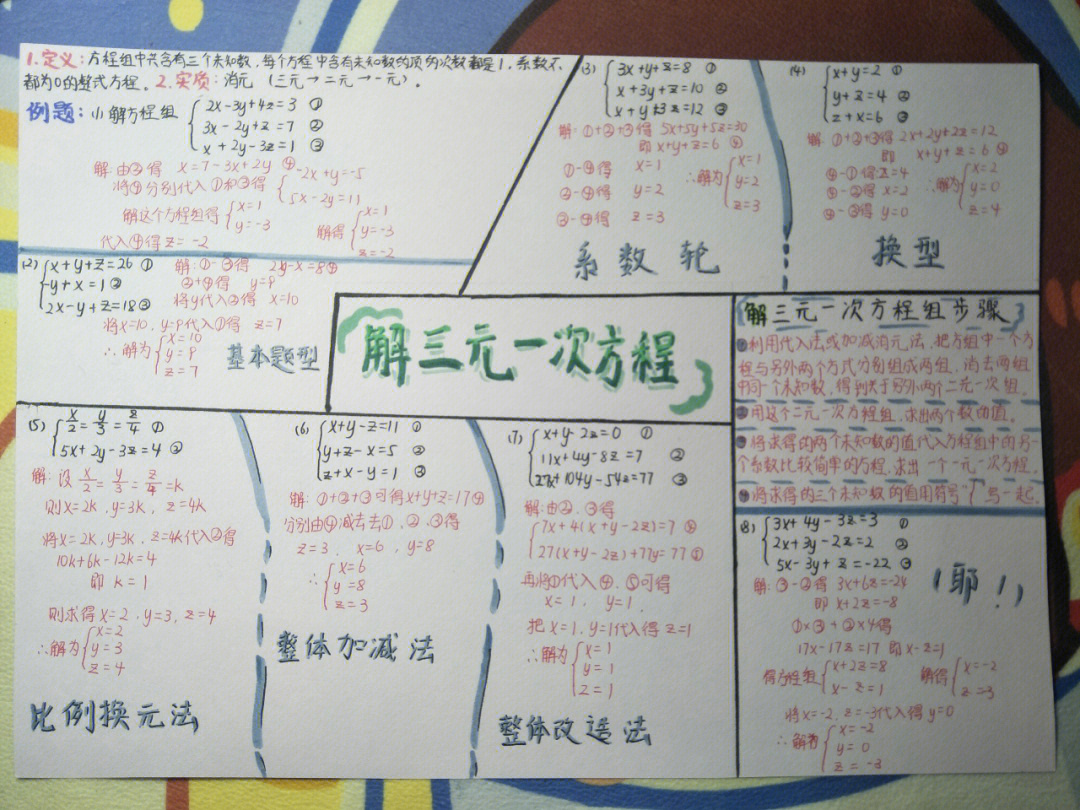 1.定义:方程组中共含有三个未知数,每个方程中含有未知数的项的次数都是1,系数不
都为0的整式方程。2.实质:消元(三元→二元→一元)。
例题:(1)解方程组
2x-3y+4z=3 ①
3x-2y+z=7 ②
x+2y-3z=1 ③
解:由②得 x=7-3x+2y ④
将④分别代入①和③得
-2x+y=-5
5x-2y=11
解这个方程组得
x=1
y=-3
代入④得z=-2
解得
x=1
y=-3
z=-2
(2)
x+y+z=26 ①
y+x=1②
2x-y+z=18③
解:①-③得 2y-x=8④
②+④得 y=9
将y代入②得 x=10
将x=10,y=9代入①得 z=7
∴解为
x=10
y=9
z=7
基本题型
(3)
3x+y+z=8 ①
x+3y+z=10 ②
x+y+3z=12 ③
解:①+②+③得 5x+5y+5z=30
即x+y+z=6 ④
①-④得 x=1
②-④得 y=2
③-④得 z=3
∴解为
x=1
y=2
z=3
系数轮
(4)
x+y=2 ①
y+z=4 ②
z+x=6 ③
解:①+②+③得2x+2y+2z=12
即 x+y+z=6 ④
④-①得z=4
④-②得x=2
④-③得y=0
∴解为
x=2
y=0
z=4
换型
解三元一次方程
解三元一次方程组步骤
①利用代入法或加减消元法,把方组中一个方
程与另外两个方式分别组成两组,消去两组
中同一个未知数,得到关于另外两个二元一次组。
②用这个二元一次方程组,求出两个数的值。
③将求得的两个未知数的值代入方程组中的另一
个系数比较简单的方程,求出一个一元一次方程。
④将求得的三个未知数的值用符号"{"写一起。
(5)
x/2=y/3=z/4 ①
5x+2y-3z=4 ②
解:设x/2=y/3=z/4=k
则x=2k,y=3k,z=4k
将x=2k,y=3k,z=4k代入②得
10k+6k-12k=4
即 k=1
则求得x=2,y=3,z=4
∴解为
x=2
y=3
z=4
比例换元法
(6)
x+y-z=11 ①
y+z-x=5 ②
z+x-y=1 ③
解:①+②+③可得x+y+z=17④
分别由④减去去①,②,③得
z=3,x=6,y=8
∴
x=6
y=8
z=3
整体加减法
(7)
x+y-2z=0 ①
11x+4y-8z=7 ②
27x+104y-54z=77 ③
解:由②,③得
7x+4(x+y-2z)=7
27(x+y-2z)+77y=77
再将①代入④,⑤可得
x=1,y=1,
把x=1,y=1代入得z=1
∴解为
x=1
y=1
z=1
整体改造法
(8)
3x+4y-3z=3 ①
2x+3y-2z=2 ②
5x-3y+z=-22 ③
解:③-②得 3x+6z=-24
即x+2z=-8
①×③+②×4得
17x-17z=17 即x-z=1
得方程组
x+2z=8
x-z=1
解得
x=-2
z=-3
将x=-2,z=-3代入得y=0
∴解为
x=-2
y=0
z=-3
(耶!)